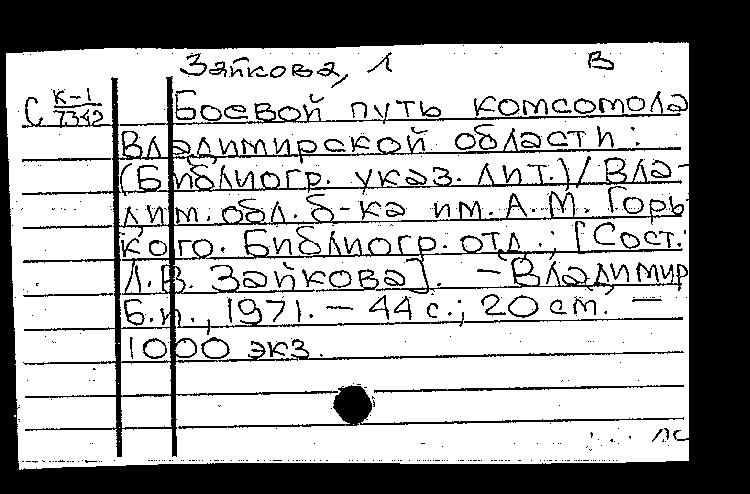 Зайкова, Л В
С К-1/7342
Боевой путь комсомола
Владимирской области:
(Библиогр. указ. лит.)/Вла-
дим. обл. б-ка им. А.М. Горь
кого. Библиогр. отд.; [Сост.:
Л.В. Зайкова]. – Владимир
Б.и., 1971. – 44 с.; 20 см. –
1000 экз.